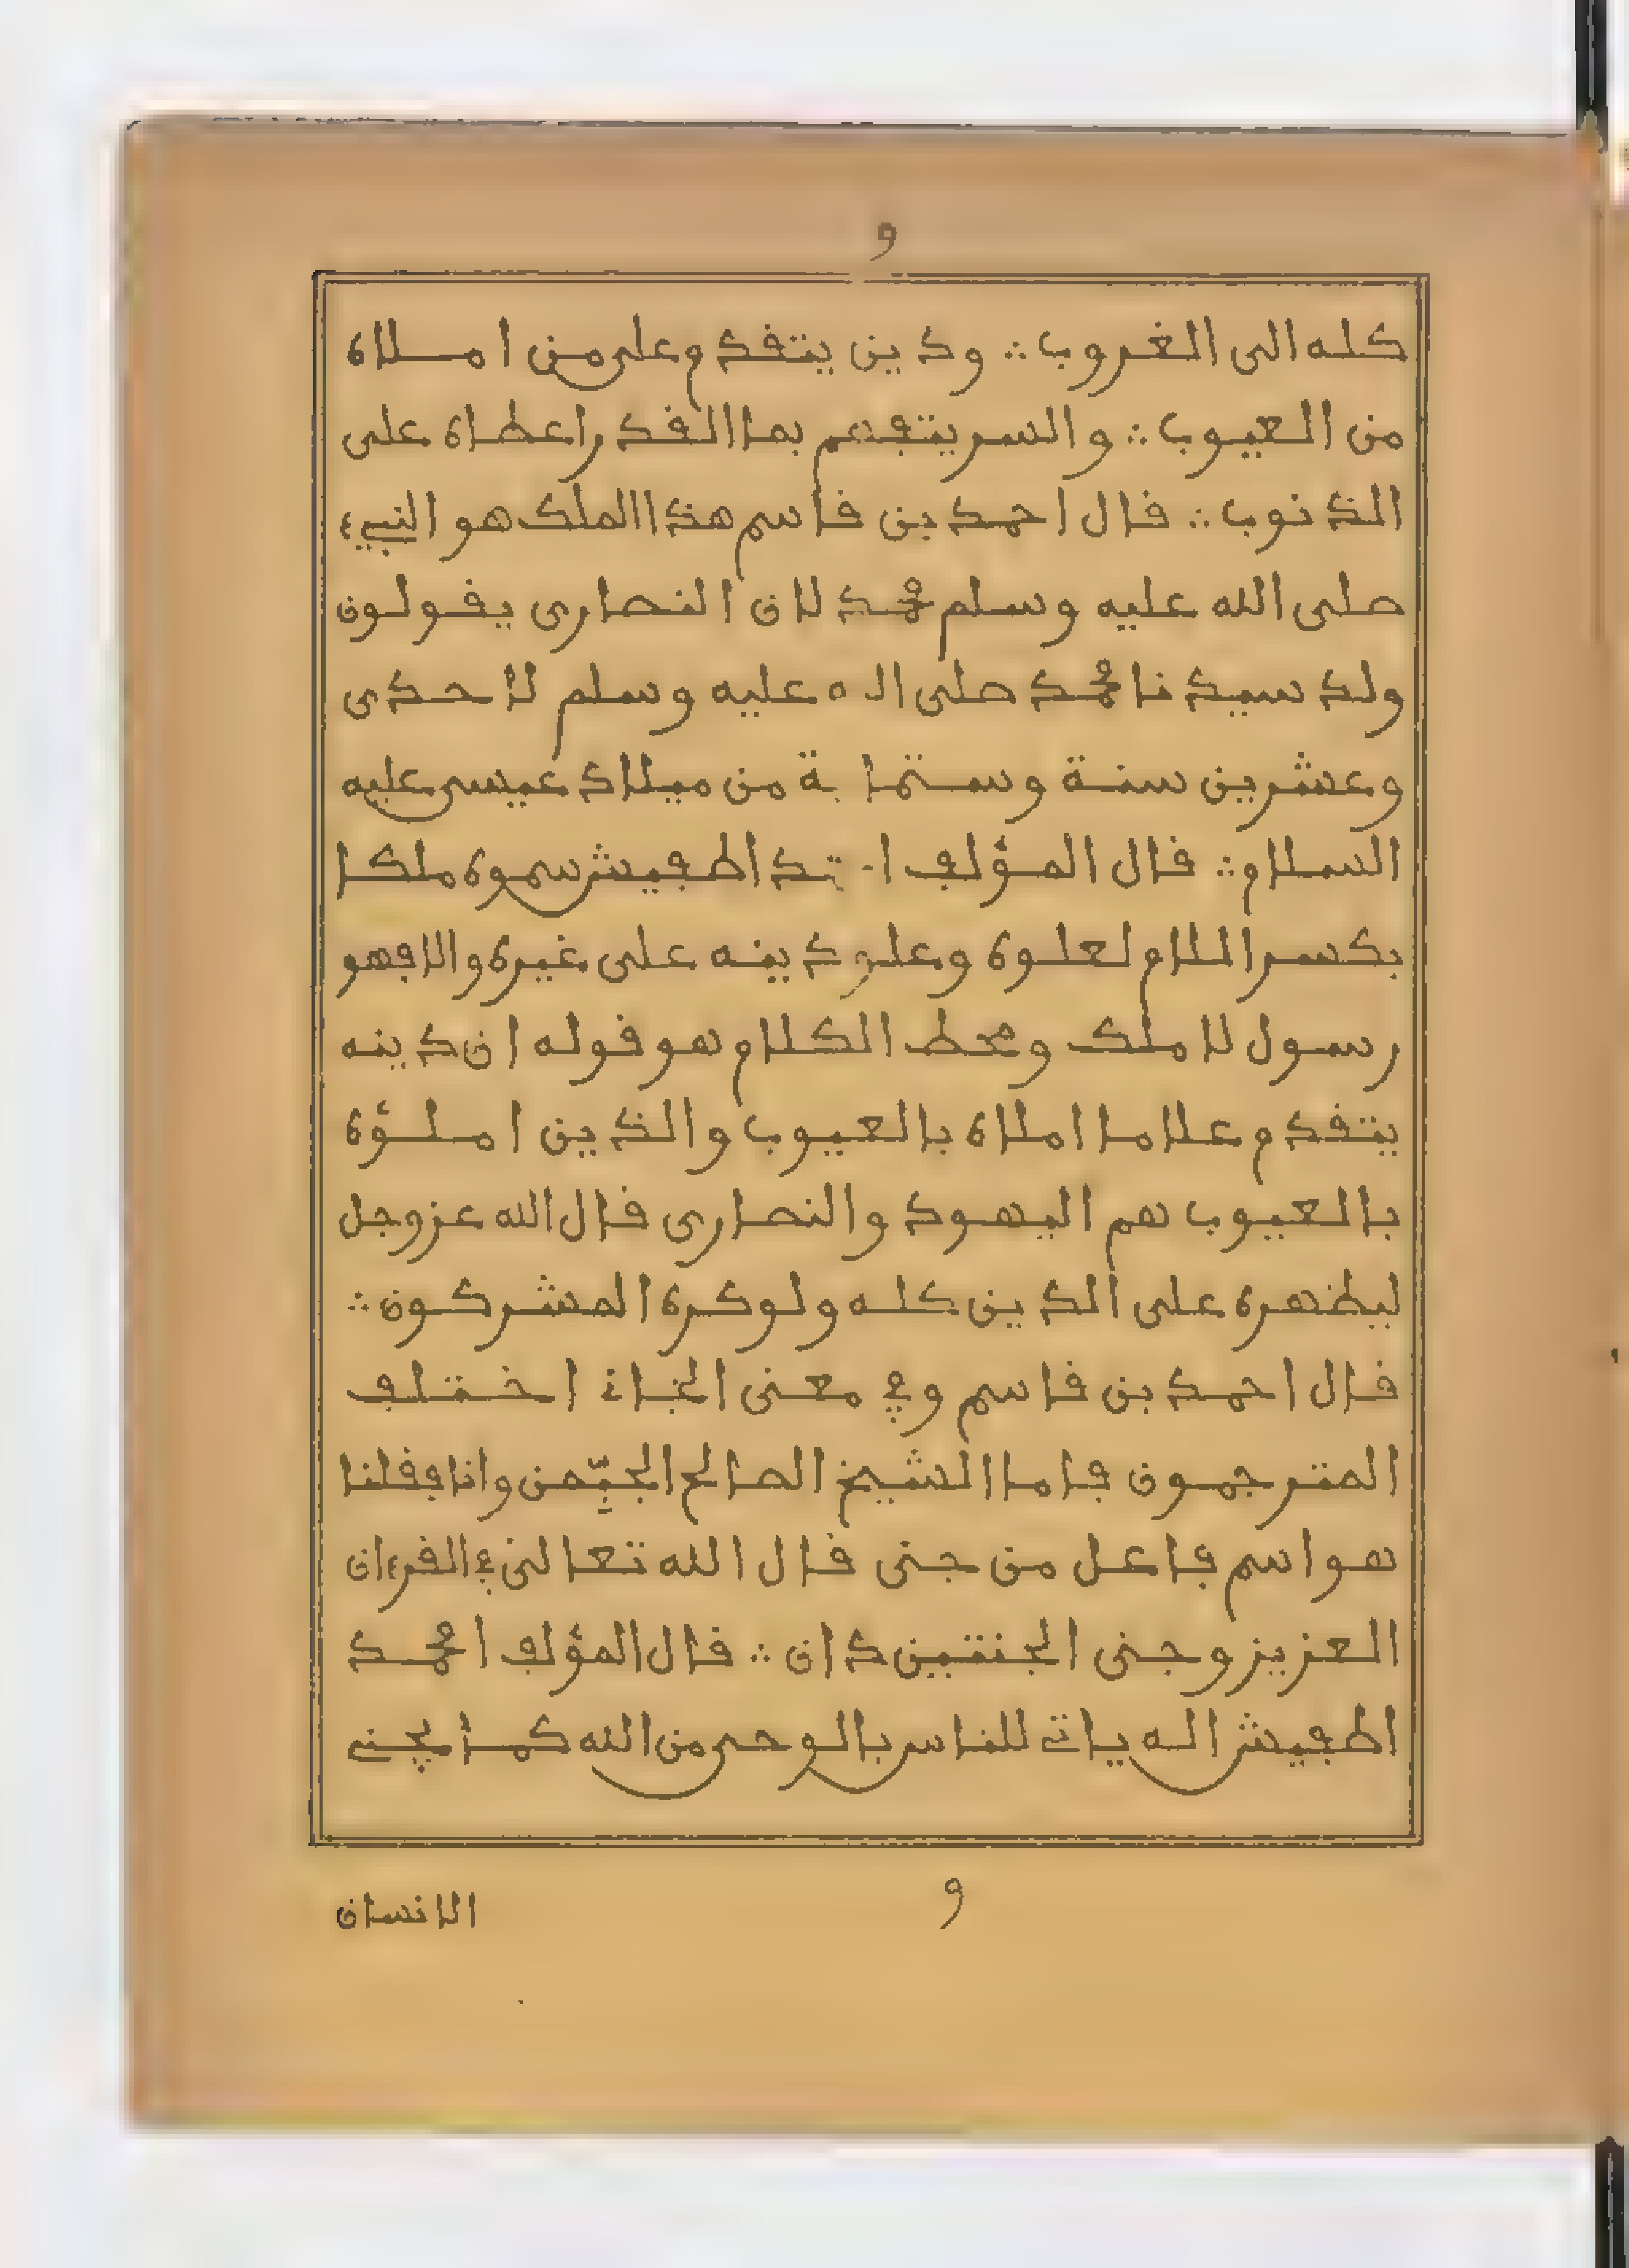 و
كله الى الغروب ∴ ودين يتقدم على من املاه
من العيوب ∴ والسر يتفهم بما القدر اعطاه على
الذنوب ∴ قال احمد بن قاسم هذا الملك هو النبيء
صلى الله عليه وسلم محمد لان النصارى يقولون
ولد سيدنا محمد صلى الـه عليه وسلم لاحدى
وعشرين سنة وستماية من ميلاد عيسى عليه
السلام ∴ قال المؤلف اطفيش سموه ملكا
بكسر اللام لعلوه وعلو دينه على غيره والا فهو
رسول لا ملك ومحط الكلام هو قوله ان دينه
يتقدم علا ما املاه بالعيوب والذين املؤه
بالعيوب هم اليهود والنصارى قال الله عز وجل
ليظهره على الدين كله ولو كره المشركون ∴
قال احمد بن قاسم وفي معنى اختلف
المترجمون فاما الشيخ الصالح الجبّهن وانا فقلنا
هو اسم فاعل من جنى قال الله تعالى في القرءان
العزيز وجنى الجنتين دان ∴ قال المؤلف امحمد
اطفيش اله ياتي للناس بالوحي من الله كما يجني
و
الانسان